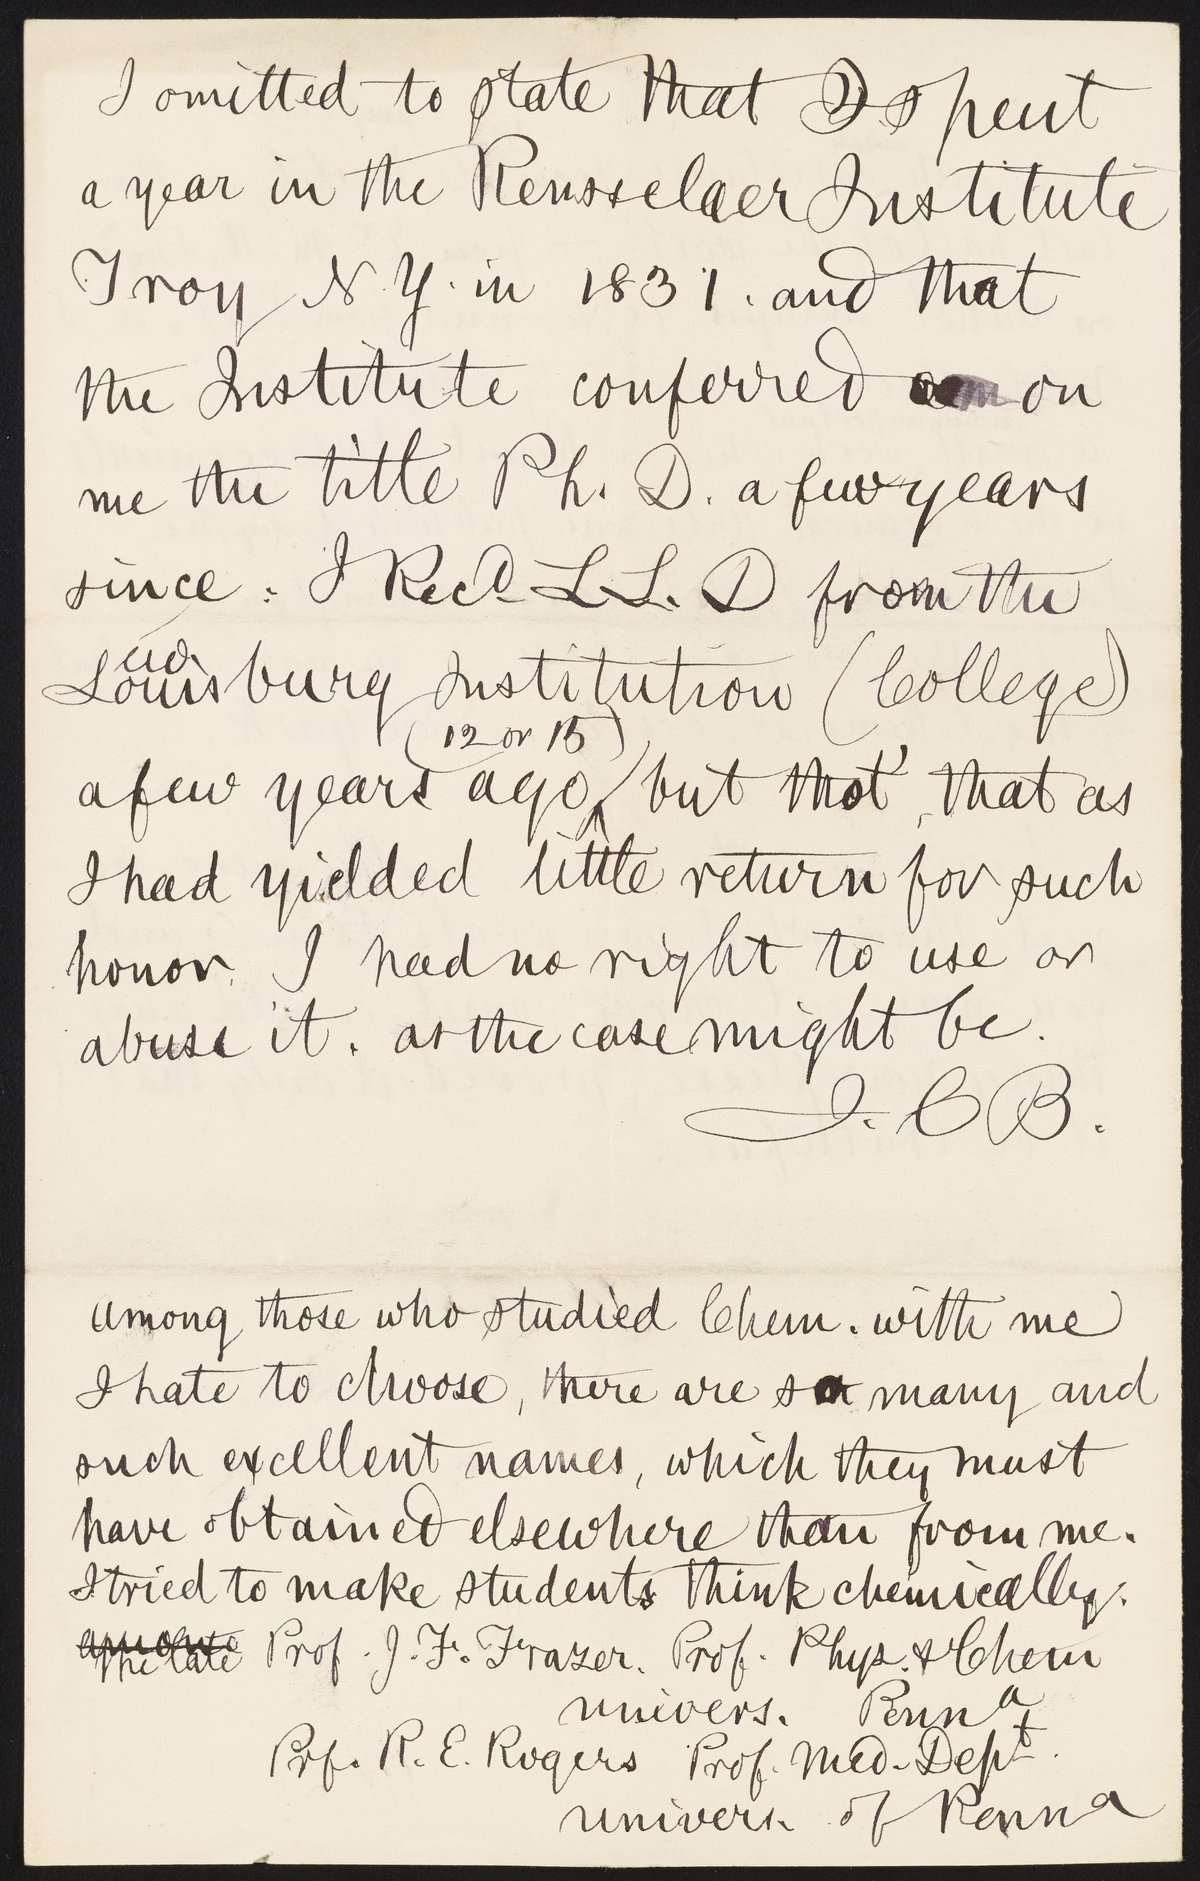 I omitted to state that I spent
a year in the Rensselaer Institute
Troy N.Y. in 1831. and that
the Institute conferred on
me the title Ph. D. a few years
since. I Recd L L. D from the
Louisburg Institution (College)
(12 or 15)
a few years ago, but thot', that as
I had yielded little return for such
honor. I had no right to use or
abuse it. as the case might be.
J. C B.
among those who studied Chem. with me
I hate to choose, there are so many and
such excellent names, which they must
have obtained elsewhere than from me.
I tried to make students think chemically.
The late Prof. J. F. Frazer. Prof. Phys. & Chem
univers. Penna
Prf. R. E. Rogers Prof. Med. Dept.
univers. of Penna